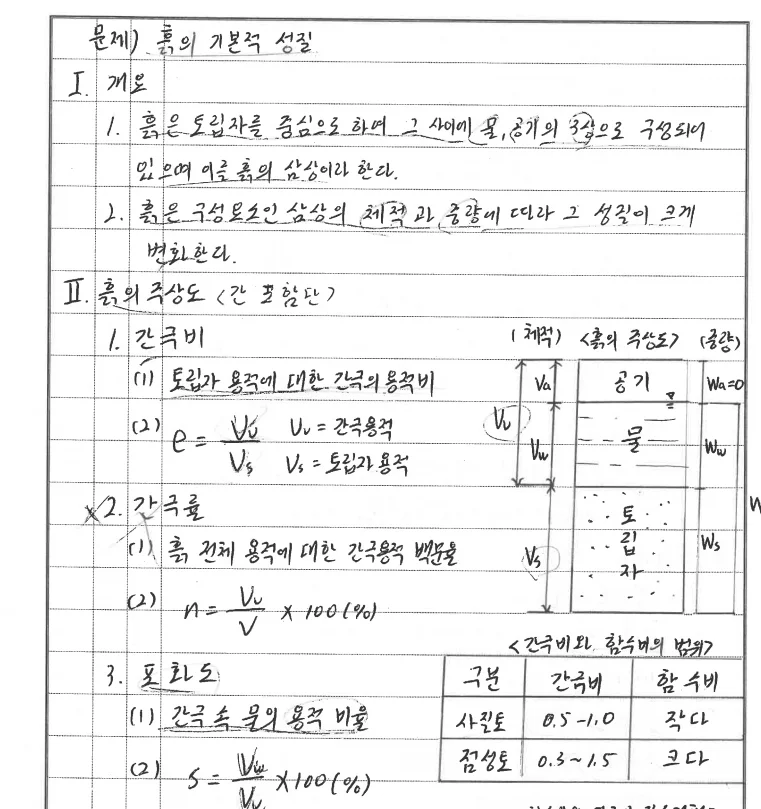 문제) 흙의 기본적 성질
I. 개요
1. 흙은 토립자를 중심으로 하며 그 사이에 물, 공기의 3상으로 구성되어
있으며 이를 흙의 삼상이라 한다.
2. 흙은 구성요소인 삼상의 체적과 중량에 따라 그 성질이 크게
변화한다.
II. 흙의 주상도 <간 포함단>
1. 간극비
(1) 토립자 용적에 대한 간극의 용적비
(2) e = Vv / Vs Vv = 간극용적
Vs = 토립자 용적
(체적) <흙의 주상도> (중량)
Va 공기 Wa=0
Vv Vw 물 Ww
Vs 토립자 Ws
W
x2. 간극률
(1) 흙 전체 용적에 대한 간극용적 백분율
(2) n = Vv / V × 100(%)
3. 포화도
(1) 간극 속 물의 용적 비율
(2) S = Vw / Vv ×100(%)
<간극비와 함수비의 범위>
구분 간극비 함수비
사질토 0.5-1.0 작다
점성토 0.3~1.5 크다